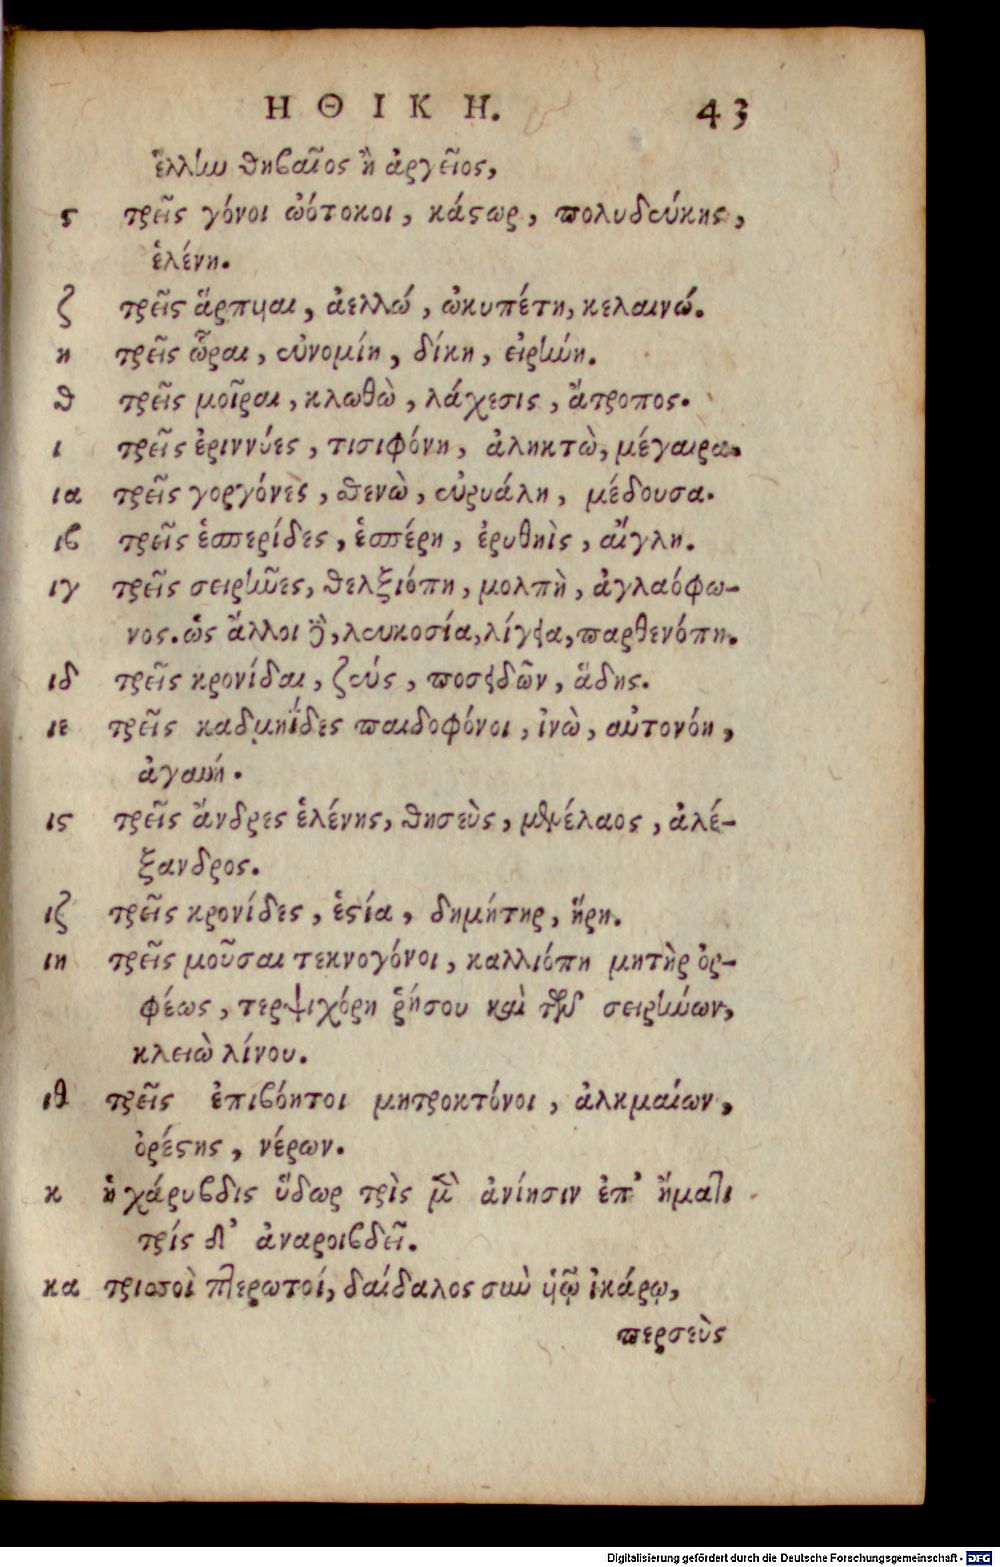 ΗΘΙΚΗ. 43
ἑλλὼ θηβαῖος ἢ ἀργεῖος,
ϛ τρεῖς γόνοι ὠότοκοι, κάϛωρ, πολυδεύκης,
ἑλένη.
ζ τρεῖς ἅρπυιαι, ἀελλώ, ὠκυπέτη, κελαινώ.
η τρεῖς ὧραι, εὐνομίη, δίκη, εἰρήνη.
θ τρεῖς μοῖραι, κλωθὼ, λάχεσις, ἄτροπος.
ι τρεῖς ἐριννύες, τισιφόνη, ἀληκτὼ, μέγαιρα.
ια τρεῖς γοργόνες, σθενὼ, εὐρυάλη, μέδουσα.
ιβ τρεῖς ἑσπερίδες, ἑσπέρη, ἐρυθηὶς, αἴγλη.
ιγ τρεῖς σειρῆνες, θελξιόπη, μολπὴ, ἀγλαόφω-
νος. ὡς ἄλλοι δὲ, λευκοσία, λίγεια, παρθενόπη.
ιδ τρεῖς κρονίδαι, ζεύς, ποσειδῶν, ἅδης.
ιε τρεῖς καδμηΐδες παιδοφόνοι, ἰνὼ, αὐτονόη,
ἀγαυή.
ιϛ τρεῖς ἄνδρες ἑλένης, θησεὺς, μενέλαος, ἀλέ-
ξανδρος.
ιζ τρεῖς κρονίδες, ἑϛία, δημήτηρ, ἥρη.
ιη τρεῖς μοῦσαι τεκνογόνοι, καλλιόπη μητὴρ ὀρ-
φέως, τερψιχόρη ῥήσου καὶ τῶν σειρήνων,
κλειὼ λίνου.
ιθ τρεῖς ἐπιβόητοι μητροκτόνοι, ἀλκμαίων,
ὀρέϛης, νέρων.
κ ἡ χάρυβδις ὕδωρ τρὶς μὲν ἀνίησιν ἐπ' ἤματι
τρίς δ' ἀναροιβδεῖ.
κα τρισσοὶ πτερωτοί, δαίδαλος σὺν ὑῷ ἰκάρῳ,
περσεὺς
Digitalisierung gefördert durch die Deutsche Forschungsgemeinschaft - DFG